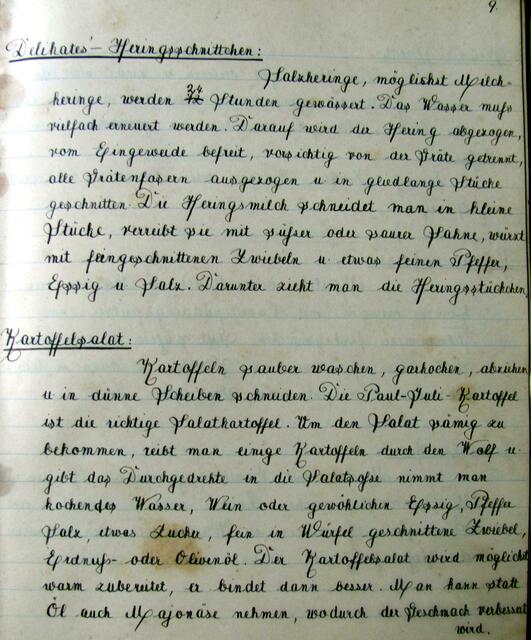 9.
Delikates - Heringsschnittchen:
Salzheringe, möglichst Milch-
heringe, werden 24 Stunden gewässert. Das Wasser muß
vielfach erneuert werden. Darauf wird der Hering abgezogen,
vom Eingeweide befreit, vorsichtig von der Gräte getrennt,
alle Grätenfasern ausgezogen u in gliedlange Stücke
geschnitten. Die Heringsmilch schneidet man in kleine
Stücke, verreibt sie mit süßer oder saurer Sahne, würzt
mit feingeschnittenen Zwiebeln u. etwas feinen Pfeffer,
Essig u Salz. Darunter zieht man die Heringsstückchen.
Kartoffelsalat:
Kartoffeln sauber waschen, garkochen, abziehen
u in dünne Scheiben schneiden. Die Paul-Juli-Kartoffel
ist die richtige Salatkartoffel. Um den Salat sämig zu
bekommen, reibt man einige Kartoffeln durch den Wolf u.
gibt das Durchgedrehte in die Salatsoße nimmt man
kochendes Wasser, Wein oder gewöhlichen Essig, Pfeffer
Salz, etwas Zucker, fein in Würfel geschnittene Zwiebel,
Erdnuß- oder Olivenöl. Der Kartoffelsalat wird möglichst
warm zubereitet, er bindet dann besser. Man kann statt
Öl auch Majonäse nehmen, wodurch der Geschmack verbessert
wird.